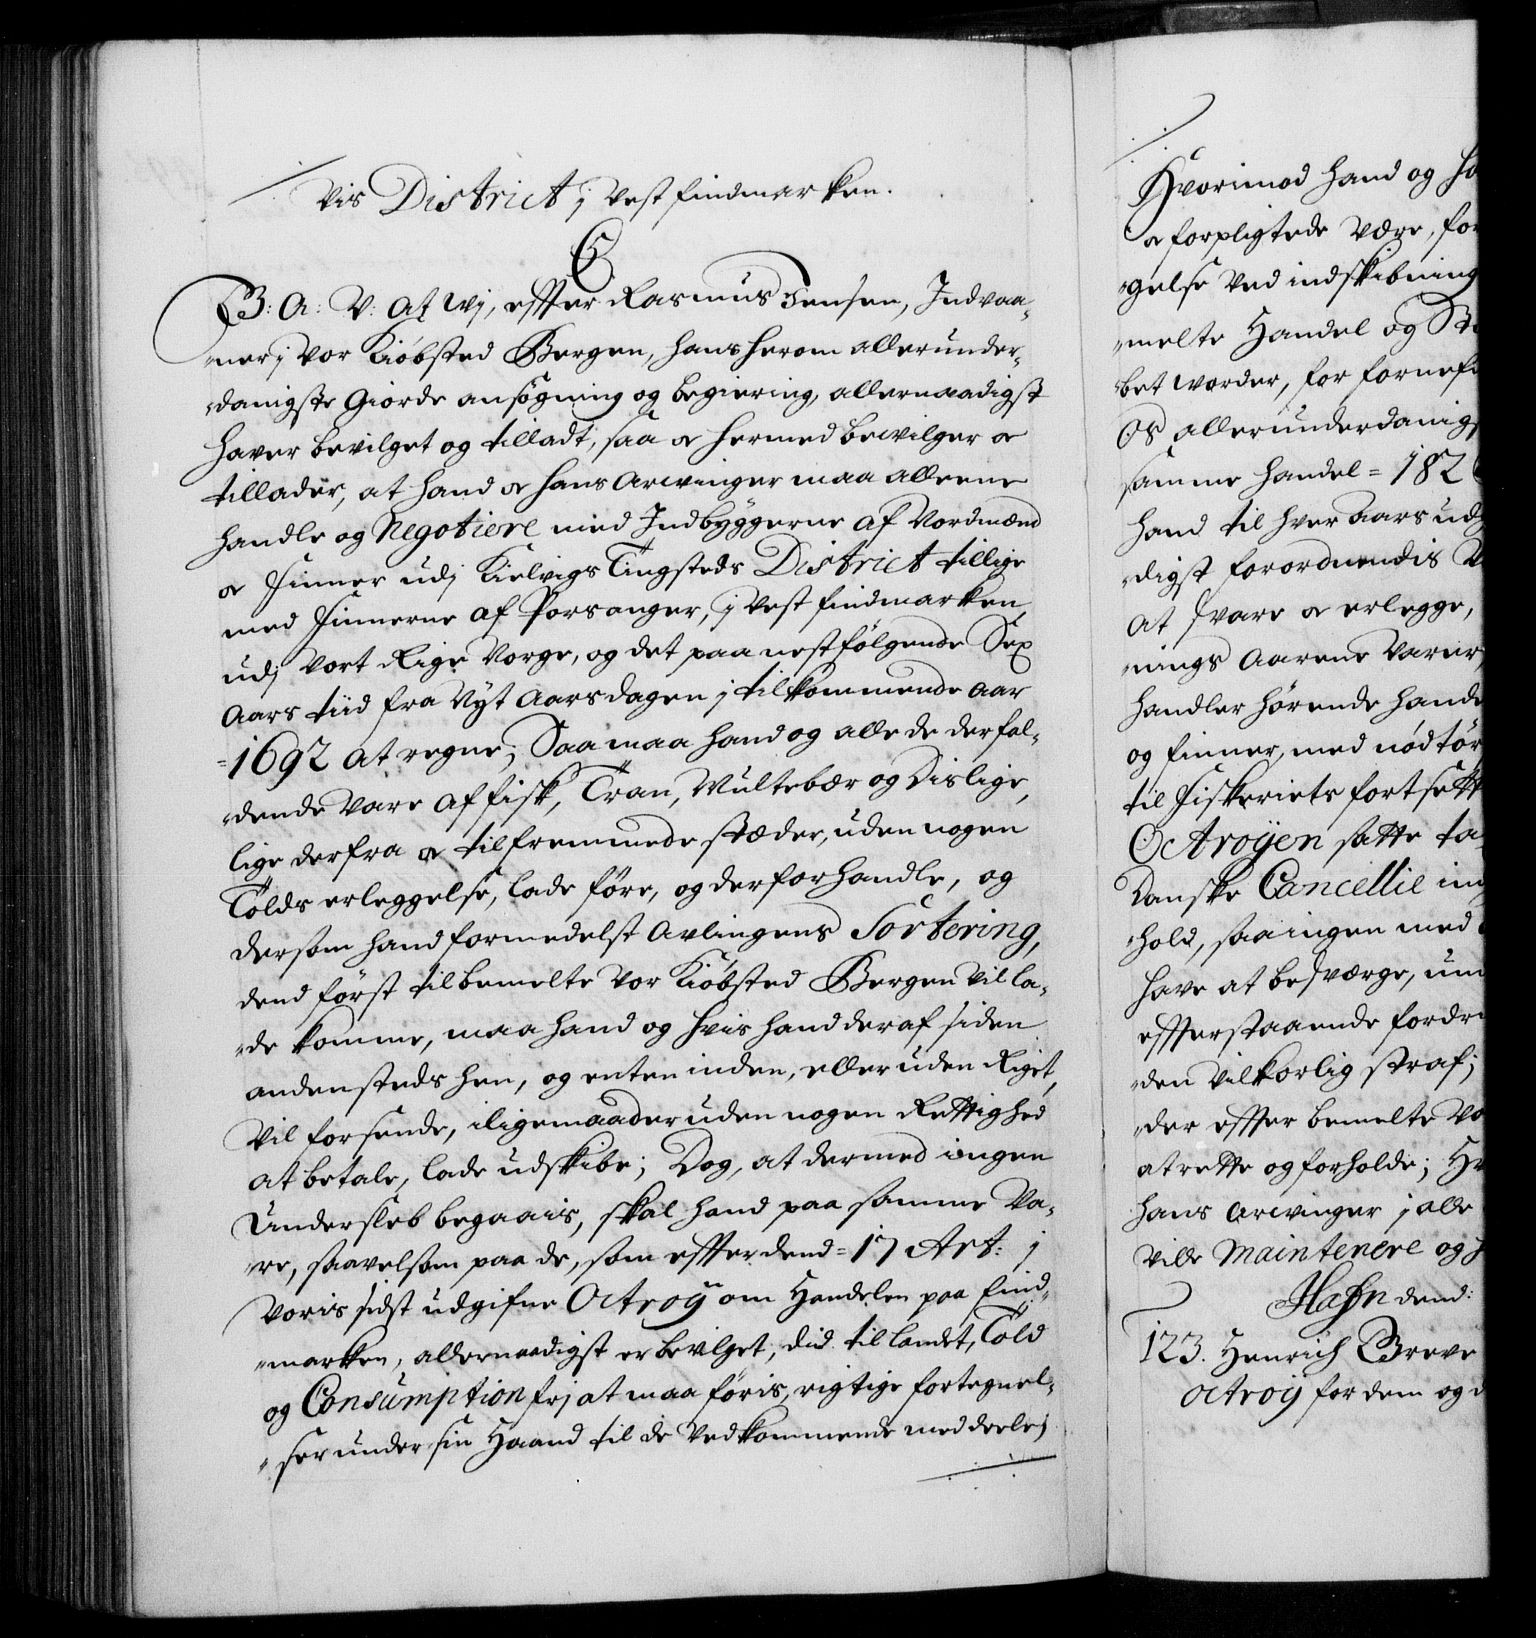 vis District j Vestfindmarken.
C5
G: A: V: At Wj, effter Rasmus Jensen, Indvaa-
ner j Vor Kiøbsted Bergen, hans herom allerunder-
danigste Giorde ansøgning og begiering, allernaadigst
haver bevilget og tilladt, saa & hermed bevilger &
tillader, at hand & hans Arvinger maa alleene
handle og Negotiere med Indbyggerne af Nordmænd
& Finner udj Kielvigs Tingsteds District tillige
med Finnerne af Porsanger, j Vest findmarken,
udj Vort Rige Norge, og det paa nestfølgende Sex
Aars tiid fra Nyt Aarsdagen j tilkommende Aar
1692 at regne; Saa maa hand og alle de derfal-
dende Vare af fisk, Tran, Multebær og Dislige,
lige derfra & til fremmede stæder, uden nogen
Tolds erleggelse, lade føre, og derforhandle, og
dersom hand formedelst Avlingens Sortering,
dend først til bemelte Vor Kiøbsted Bergen vil la-
de komme, maa hand og hvis hand deraf siden
andensteds hen, og enten inden, eller uden Riget,
vil forsende, iligemaader uden nogen Rettighed
at betale, lade udskibe; Dog, at dermed ingen
Undersleb begaais, skal hand paa samme Va-
re, saavelsom paa de, som effter dend 17 Art: j
Voris sidst udgifne Octroÿ om Handelen paa find-
marken, allernaadigst er bevilget, did til landet, Told
og Consumption frj at maa føris, rigtige fortegnel-
ser under sin Haand til de Vedkommende meddeele;
Hvorimod hand og ha
& forpligtede være, for
gelse ved indskibning
melte Handel og
bet worder, for fornefn
Os allerunderdanigs
samme handel 182
hand til hver Aars ud
digst forordnendis
at svare & erlegge,
nings Aarene Varer
handler hørende hande
og finner, med nødtør
til Fiskeriets fortsett
Octroÿen satte ta
Danske Cancellie in
hold, saa ingen med
have at besværge, un
effterstaaende fordr
den vilkorlig straf;
der effter bemelte Vo
at rette og forholde; H
hans Arvinger j alle
ville Maintenere og h
Hafn dend:
123. Henrich Greve
Octroÿ for dem og d